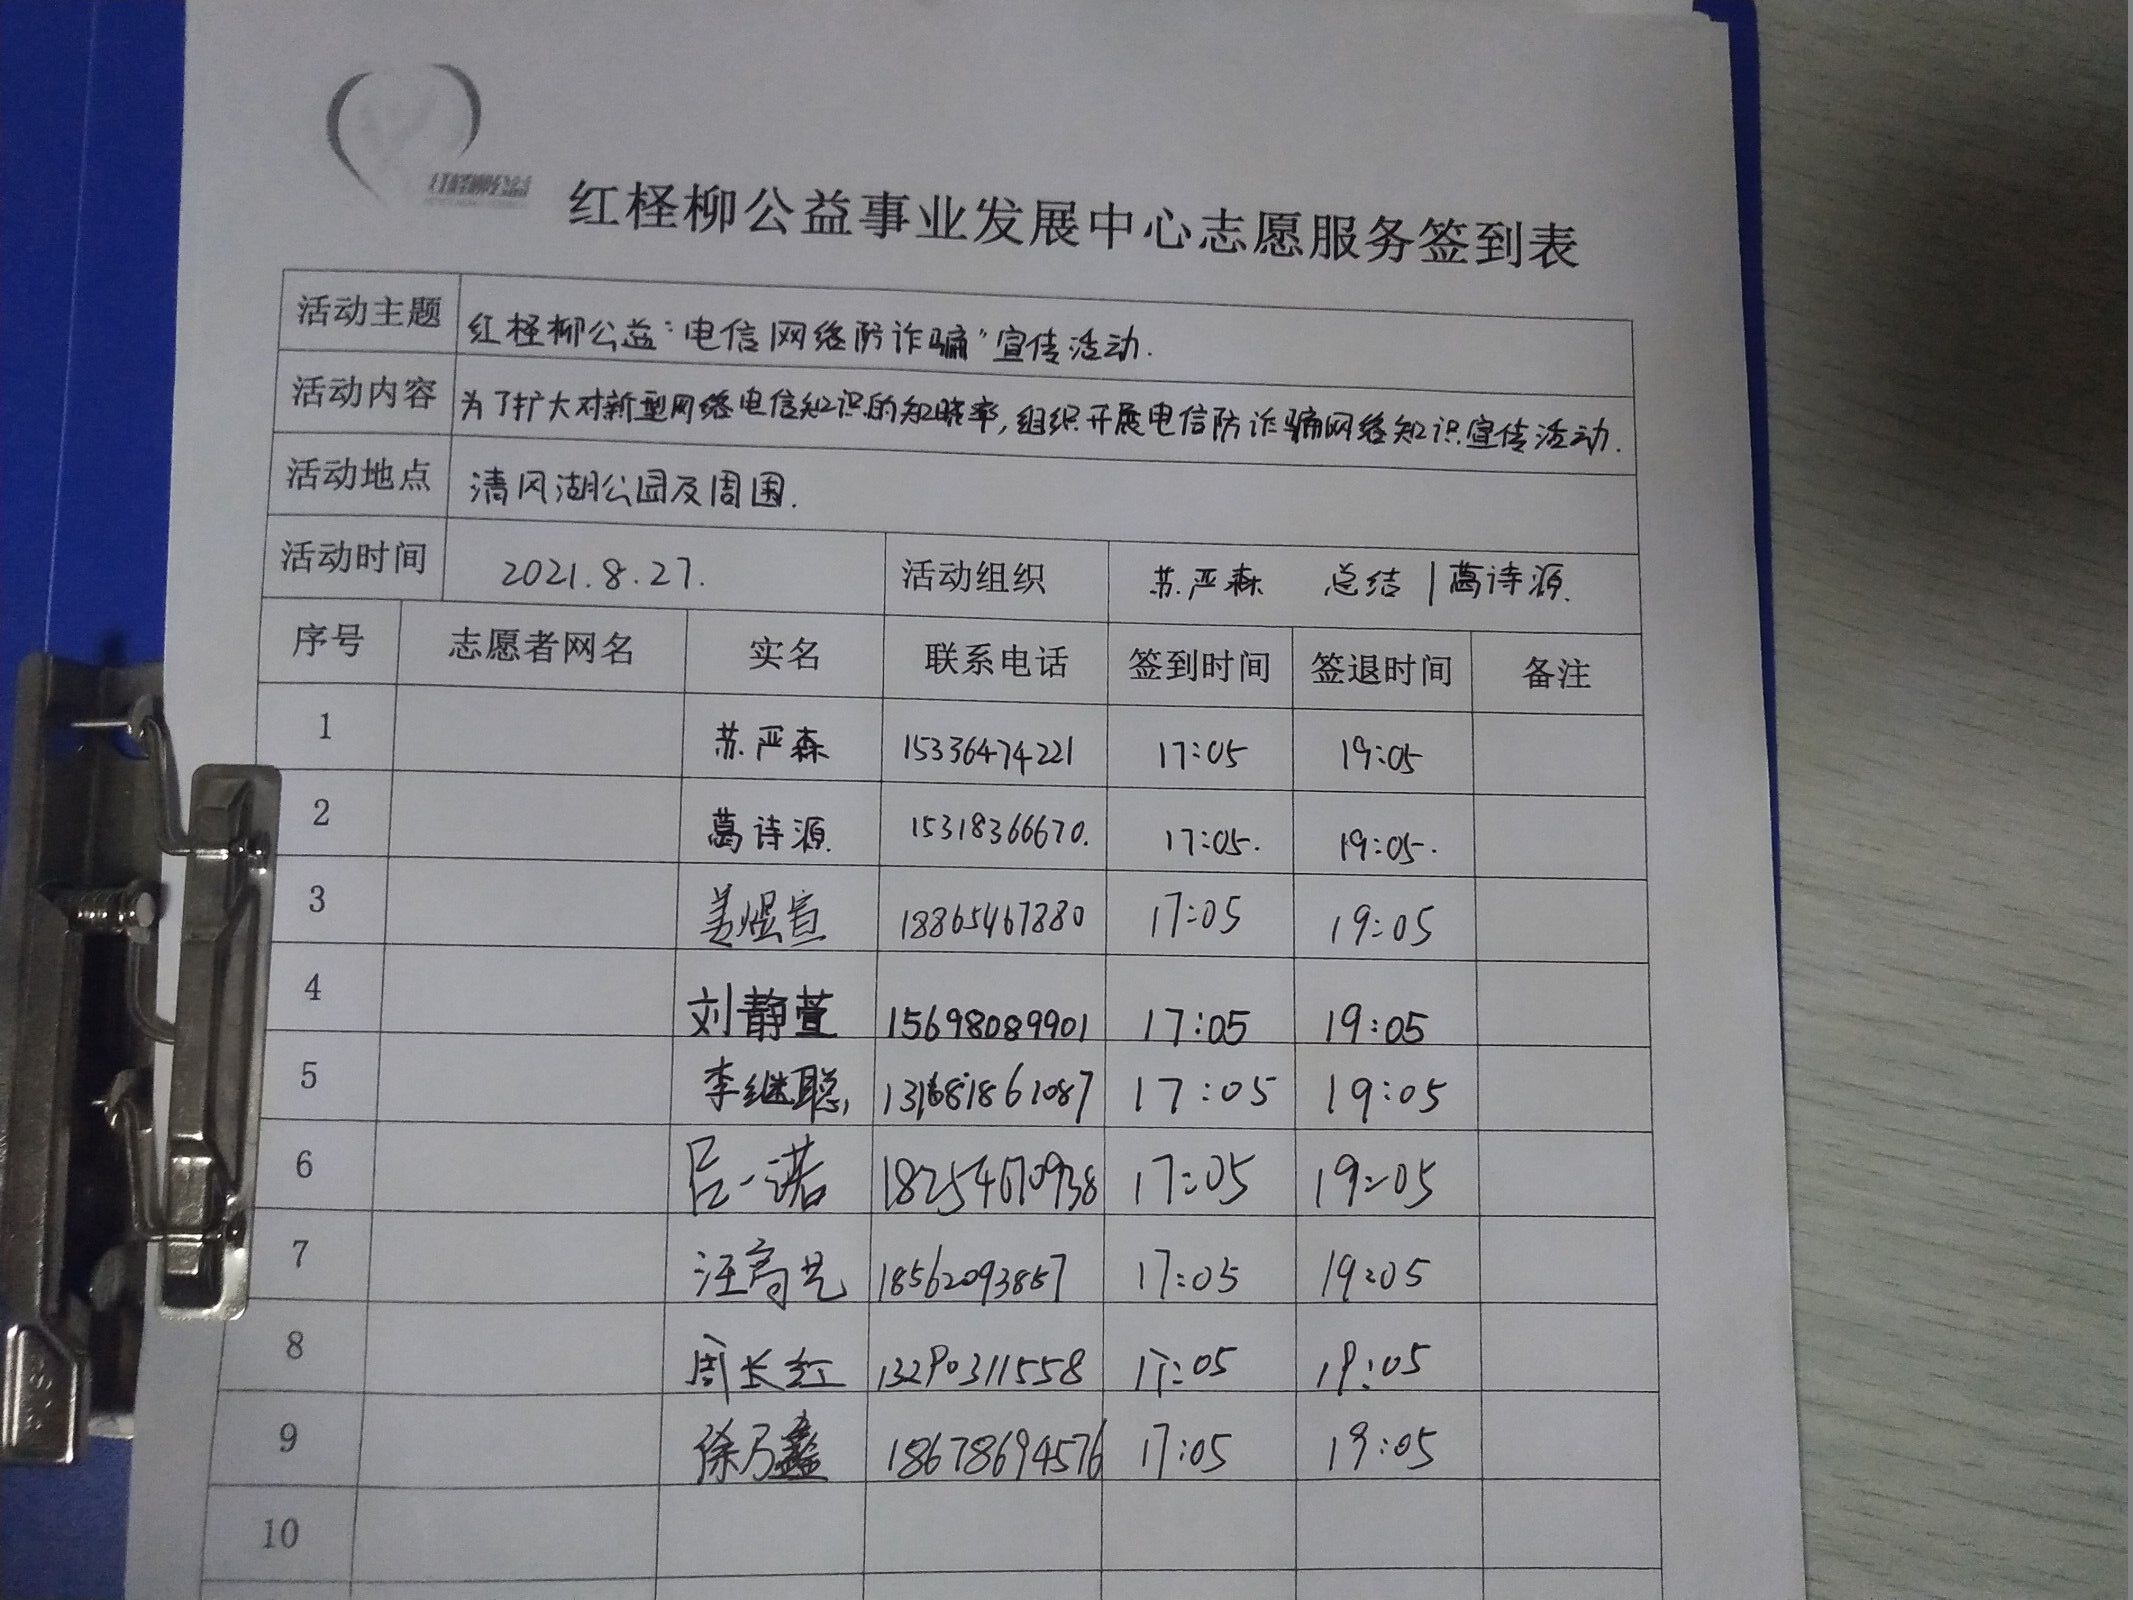 红柽柳公益
红柽柳公益事业发展中心志愿服务签到表
活动主题 红柽柳公益“电信网络防诈骗”宣传活动.
活动内容 为了扩大对新型网络电信知识的知晓率,组织开展电信防诈骗网络知识宣传活动.
活动地点 清风湖公园及周围.
活动时间 2021.8.27. 活动组织 苏严森 总结 | 葛诗源.
序号 志愿者网名 实名 联系电话 签到时间 签退时间 备注
1 苏严森 15336474221 17:05 19:05
2 葛诗源. 15318366670. 17:05. 19:05.
3 姜煜宣 18865467880 17:05 19:05
4 刘静萱 15698089901 17:05 19:05
5 李继聪 17:05 19:05
6 吕一诺 18254670938 17:05 19:05
7 18562093857 17:05 19:05
8 周长红 13290311558 17:05 19:05
9 徐乃鑫 18678694576 17:05 19:05
10